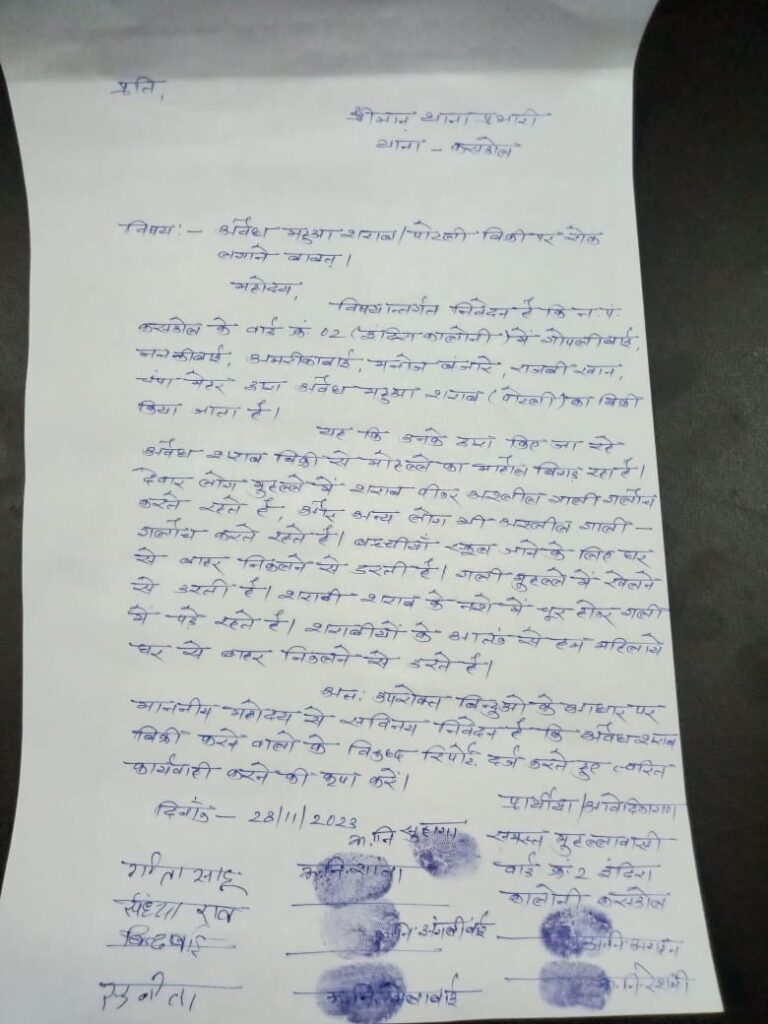 प्रति,
श्रीमान् थाना प्रभारी
थाना - कसडोल
विषय :- अवैध महुआ शराब/पोटली बिक्री पर रोक
लगाने बाबत् ।
महोदय,
विषयान्तर्गत निवेदन है कि न.पं.
कसडोल के वार्ड क्रं 02 (इंदिरा कालोनी) में गोपलीबाई,
जानकीबाई, अमरीकाबाई, मनोज बंजारे, राजवी खान,
चंपा मेहर द्वारा अवैध महुआ शराब (पोटली) का बिक्री
किया जाता है।
यह कि उनके द्वारा किए जा रहे
अवैध शराब बिक्री से मोहल्ले का माहौल बिगड़ रहा है।
देवार लोग मुहल्ले में शराब पीकर अश्लील गाली गलौच
करते रहते है, और अन्य लोग भी अश्लील गाली -
गलौच करते रहते है। बच्चीयाँ स्कूल जाने के लिए घर
से बाहर निकलने से डरती है। गली मुहल्ले में खेलने
से डरती है। शराबी शराब के नशे में चूर होकर गली
में पड़े रहते है। शराबीयों के आतंक से हम महिलाये
घर से बाहर निकलने से डरते है।
अतः उपरोक्त बिन्दुओ के आधार पर
माननीय महोदय से सविनय निवेदन है कि अवैध शराब
बिक्री करने वालो के विरुध्द रिपोर्ट दर्ज करते हुए त्वरित
कार्यवाही करने की कृपा करें।
दिनाँक - 28/11/2023
प्रार्थीया/आवेदिकागण
समस्त मुहल्लावासी
वार्ड क्रं. 2 इंदिरा
कालोनी कसडोल
अ.नि सुहागा
गीता साहू
अ.नि शांति
संध्या राव
बिन्दबाई
अ.नि अंगनीबाई
अ.नि अगहन
सुनीता
अ.नि.मिलाबाई
अ.नि रेशमी